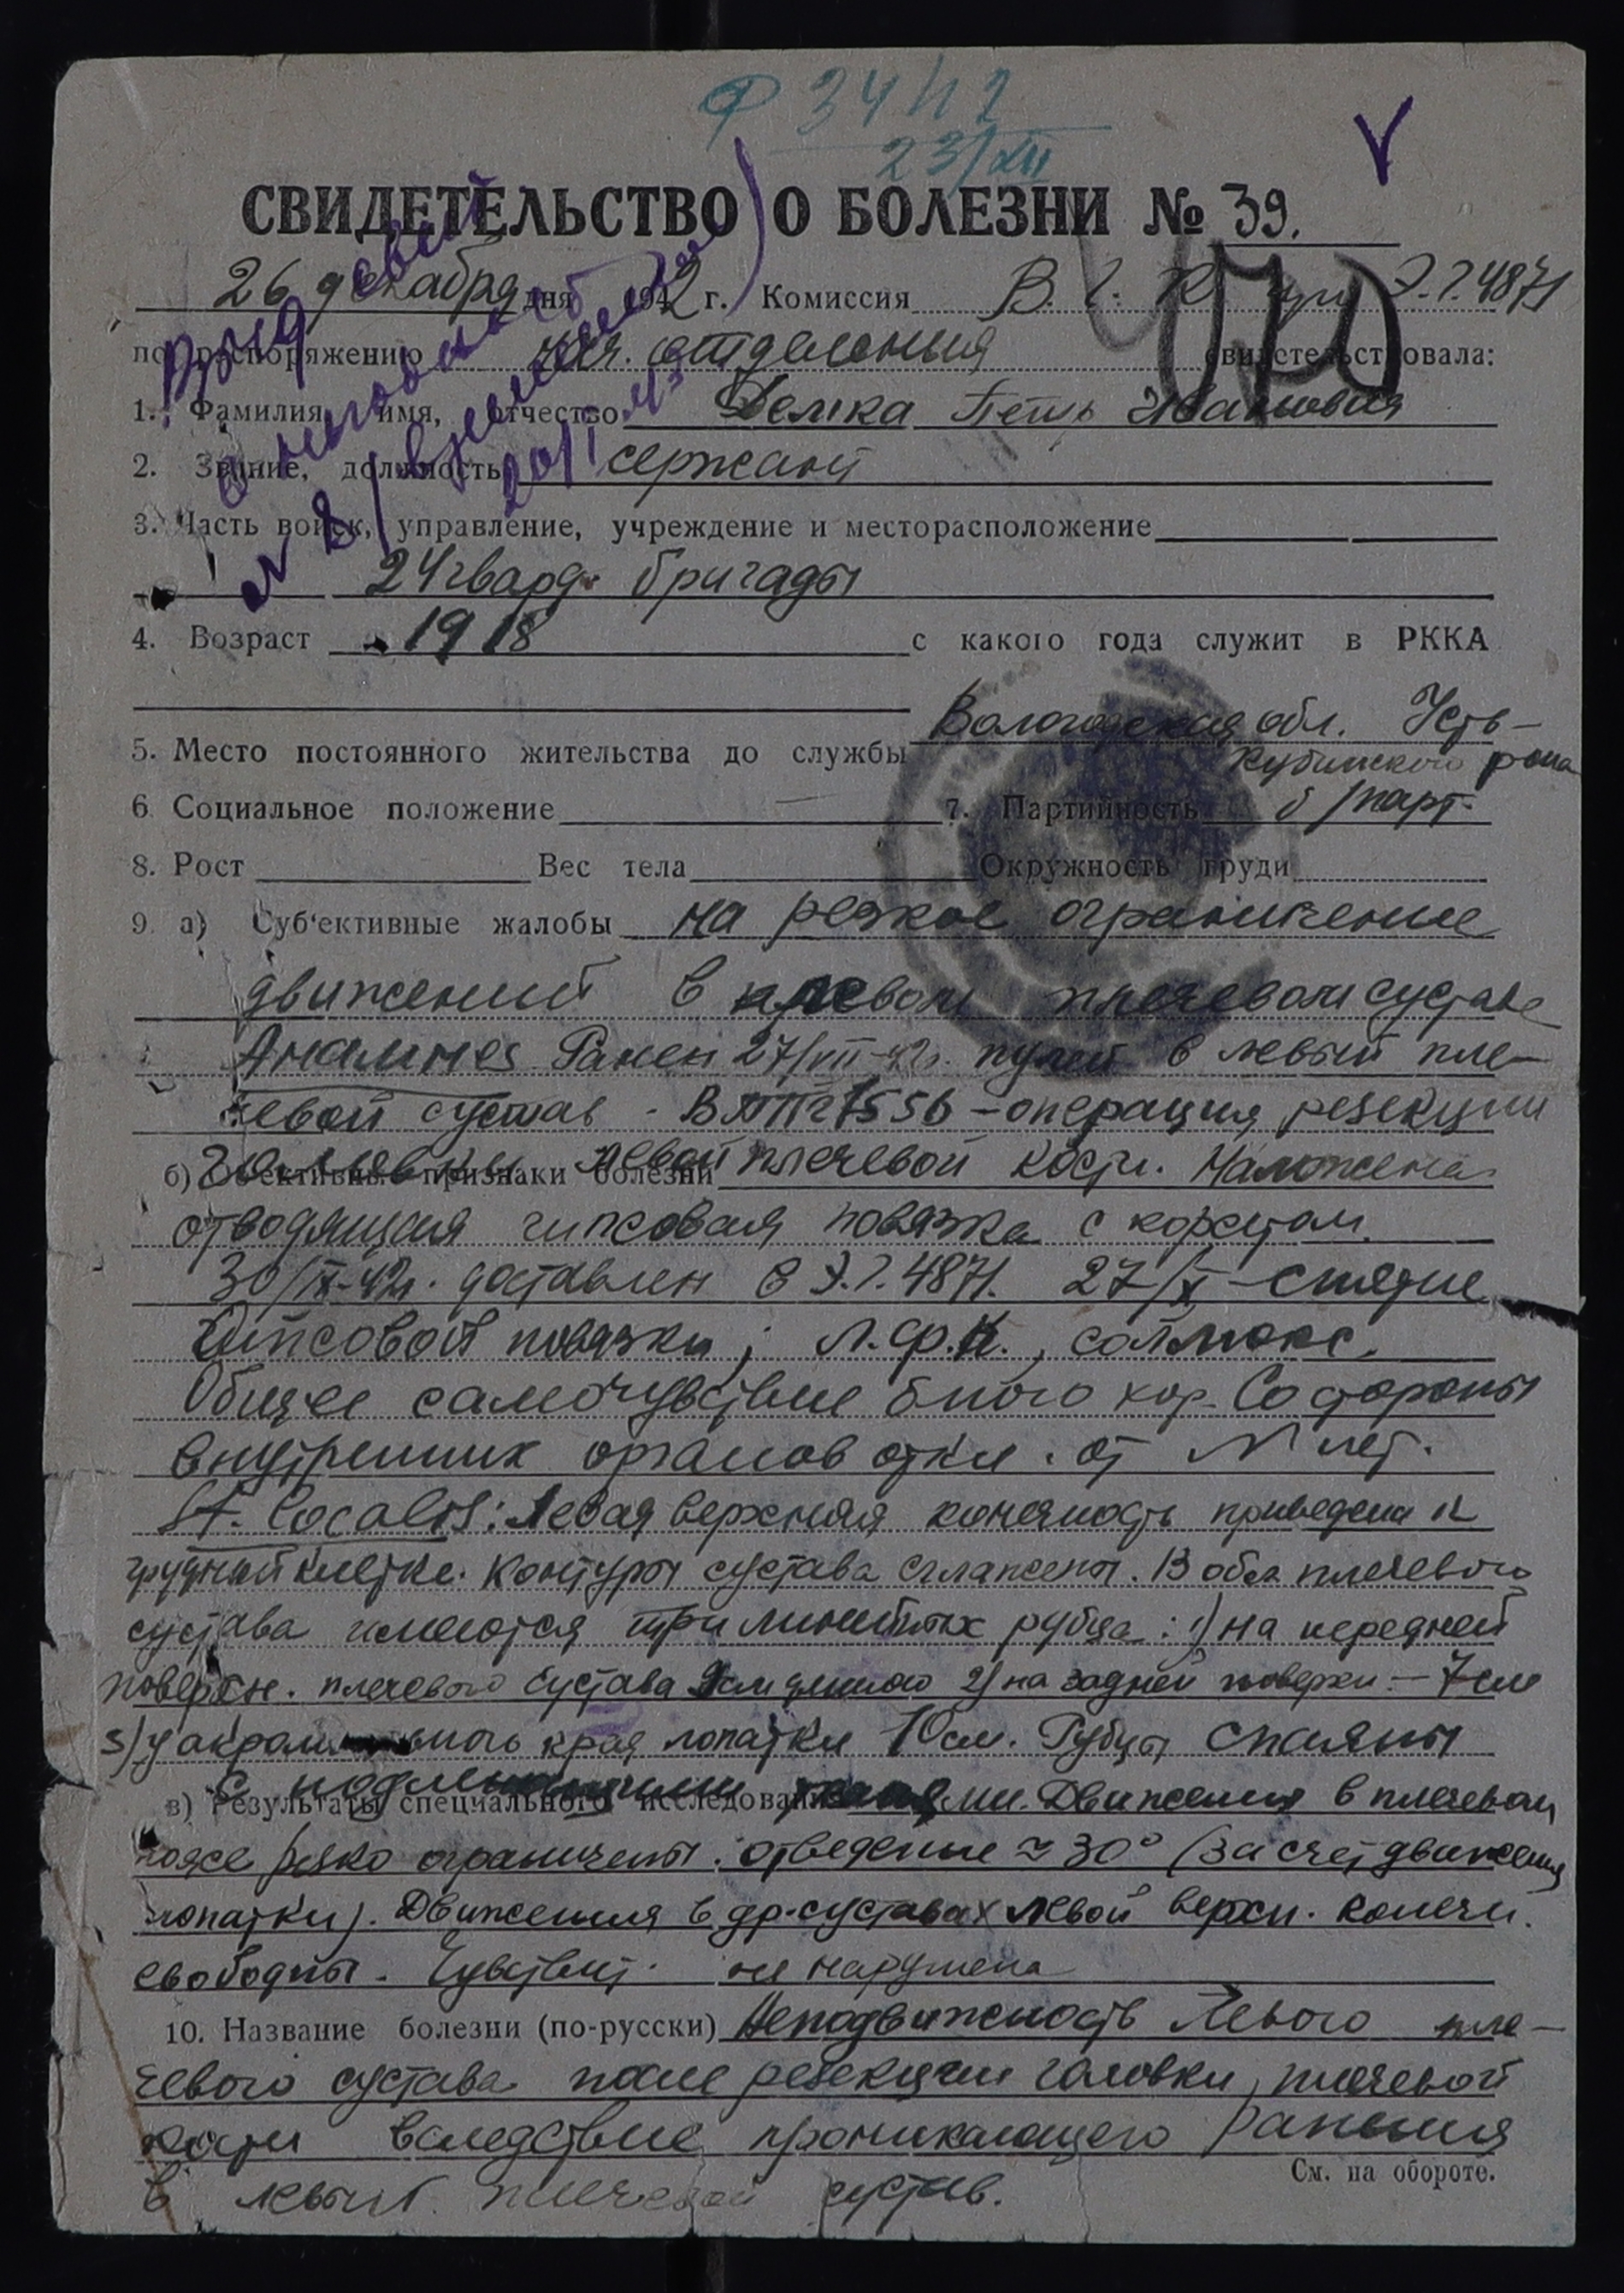 Ф 3442
23/XII
V
СВИДЕТЕЛЬСТВО О БОЛЕЗНИ № 39.
26 декабря дня 1942 г. Комиссия В. при Э.Г. 4871
по распоряжению нач. отделения свидетельствовала:
1. Фамилия, имя, отчество Петр
2. Звание, должность сержант
3. Часть войск, управление, учреждение и месторасположение
24 гвард. бригады
4. Возраст 1918 с какого года служит в РККА
Вологодская обл. Усть-
5. Место постоянного жительства до службы Кубинского р-она
6. Социальное положение — 7. Партийность б/парт.
8. Рост Вес тела Окружность груди
9. а) Суб'ективные жалобы на резкое ограничение
движений в левом плечевом суставе
Анамнез Ранен 27/VIII-42г. пулей в левый пле-
чевой сустав - В ППГ 1556 - операция резекции
б) Об'ективные признаки болезни головки левой плечевой кости. Наложена
отводящая гипсовая повязка с корсетом.
30/IX-42г. доставлен в Э.Г. 4871. 27/X - снятие
гипсовой повязки; Л.Ф.К., соллюкс.
Общее самочувствие б-ного хор. Со стороны
внутренних органов откл. от N нет.
St. localis: Левая верхняя конечность приведена к
грудной клетке. Контуры сустава сглажены. В обл. плечевого
сустава имеются три линейных рубца: 1) на передней
поверхн. плечевого сустава длиною 2) на задней поверхн. - 7 см
3) у края лопатки 10 см. Рубцы спаяны
с подлежащими
в) Результаты специального исследования тканями. Движения в плечевом
поясе резко ограничены: отведение ≈ 30° (за счет движения
лопатки). Движения в др. суставах левой верхн. конечн.
свободны. Чувствит. не нарушена
10. Название болезни (по-русски) Неподвижность левого пле-
чевого сустава после резекции головки плечевой
кости вследствие проникающего ранения
См. на обороте.
в левый плечевой сустав.